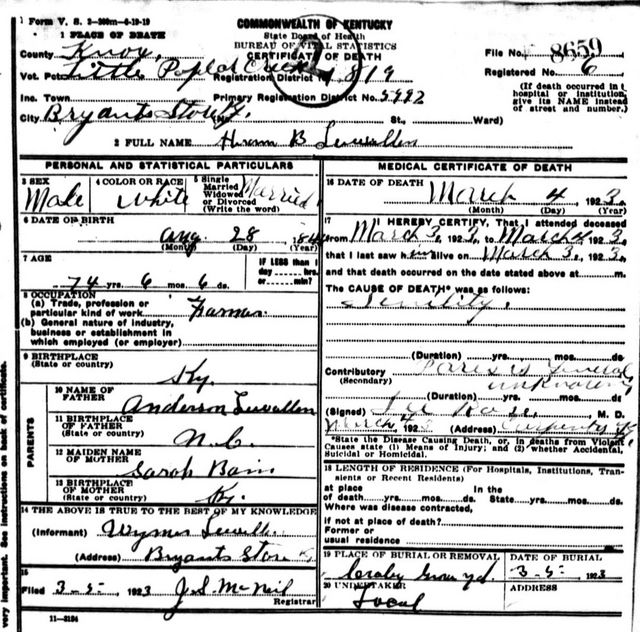 Form V. S. 2-300m-6-19-19
COMMONWEALTH OF KENTUCKY
1 PLACE OF DEATH
State Board of Health
BUREAU OF VITAL STATISTICS
CERTIFICATE OF DEATH
County Knox,
File No. 8659
Vot. Pct. Little Poplar Creek Registration District No. 819
Registered No. 6
Inc. Town Primary Registration District No. 5992
(If death occurred in a hospital or institution, give its NAME instead of street and number.)
City Bryants Store, Ky. (No. St., Ward)
2 FULL NAME Hiram B Lewallen
PERSONAL AND STATISTICAL PARTICULARS
3 SEX Male
4 COLOR OR RACE White
5 Single Married Widowed or Divorced (Write the word) Married
6 DATE OF BIRTH
Aug 28 184
(Month) (Day) (Year)
7 AGE
74 yrs. 6 mos. 6 ds.
IF LESS than 1 day hrs. or min.?
8 OCCUPATION
(a) Trade, profession or particular kind of work Farmer
(b) General nature of industry, business or establishment in which employed (or employer)
9 BIRTHPLACE (State or country) Ky.
PARENTS
10 NAME OF FATHER Anderson Lewallen
11 BIRTHPLACE OF FATHER (State or country) N.C.
12 MAIDEN NAME OF MOTHER Sarah Bain
13 BIRTHPLACE OF MOTHER (State or country) Ky.
14 THE ABOVE IS TRUE TO THE BEST OF MY KNOWLEDGE
(Informant) Wymer Lewallen
(Address) Bryants Store Ky
15
Filed 3-5- 1923 J.S. McNeil
Registrar
11-3184
MEDICAL CERTIFICATE OF DEATH
16 DATE OF DEATH March 4, 1923
(Month) (Day) (Year)
17 I HEREBY CERTIFY, That I attended deceased
from March 3, 1923, to March 4 1923,
that I last saw him alive on March 3, 1923,
and that death occurred on the date stated above at m.
The CAUSE OF DEATH* was as follows:
Senility,
(Duration) yrs. mos. ds.
Contributory (Secondary) Paresis General
unknown
(Duration) yrs. mos. ds.
(Signed) Rose, M. D.
March 4, (Address) Carpenter Ky
*State the Disease Causing Death, or, in deaths from Violent Causes state (1) Means of Injury; and (2) whether Accidental, Suicidal or Homicidal.
18 LENGTH OF RESIDENCE (For Hospitals, Institutions, Transients or Recent Residents)
at place of death yrs. mos. ds. In the State yrs. mos. ds.
Where was disease contracted,
if not at place of death?
Former or usual residence
19 PLACE OF BURIAL OR REMOVAL
DATE OF BURIAL
Graveyd. 3-5- 1923
20 UNDERTAKER
ADDRESS
Local
very important. See instructions on back of certificate.